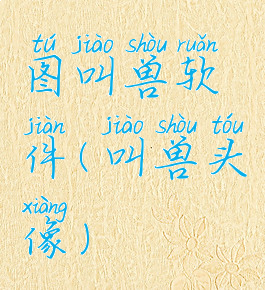 tú jiào shòu ruǎn
图叫兽软
jiàn jiào shòu tóu
件(叫兽头
xiàng
像)